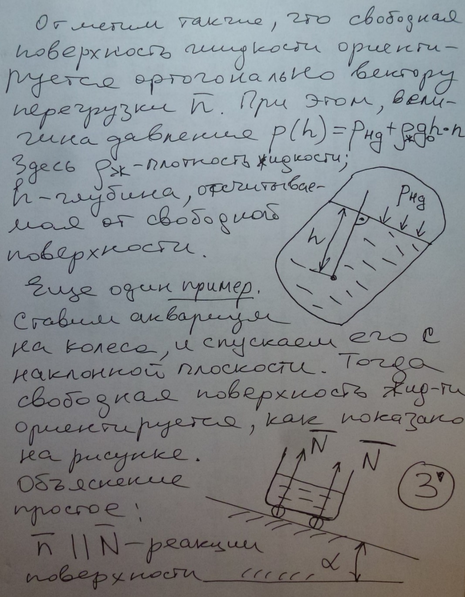 Отметим также, что свободная
поверхность жидкости ориенти-
руется ортогонально вектору
перегрузки n̄. При этом, вели-
чина давления p(h) = pнд + ρжg₀h·n
Здесь ρж-плотность жидкости;
h-глубина, отсчитывае-
мая от свободной
поверхности.
pнд
h
Еще один пример.
Ставим аквариум
на колеса, и спускаем его с
наклонной плоскости. Тогда
свободная поверхность жид-ти
ориентируется, как показано
на рисунке.
N̄ N̄
Объяснение
простое:
3
n̄ || N̄-реакции
поверхности
α